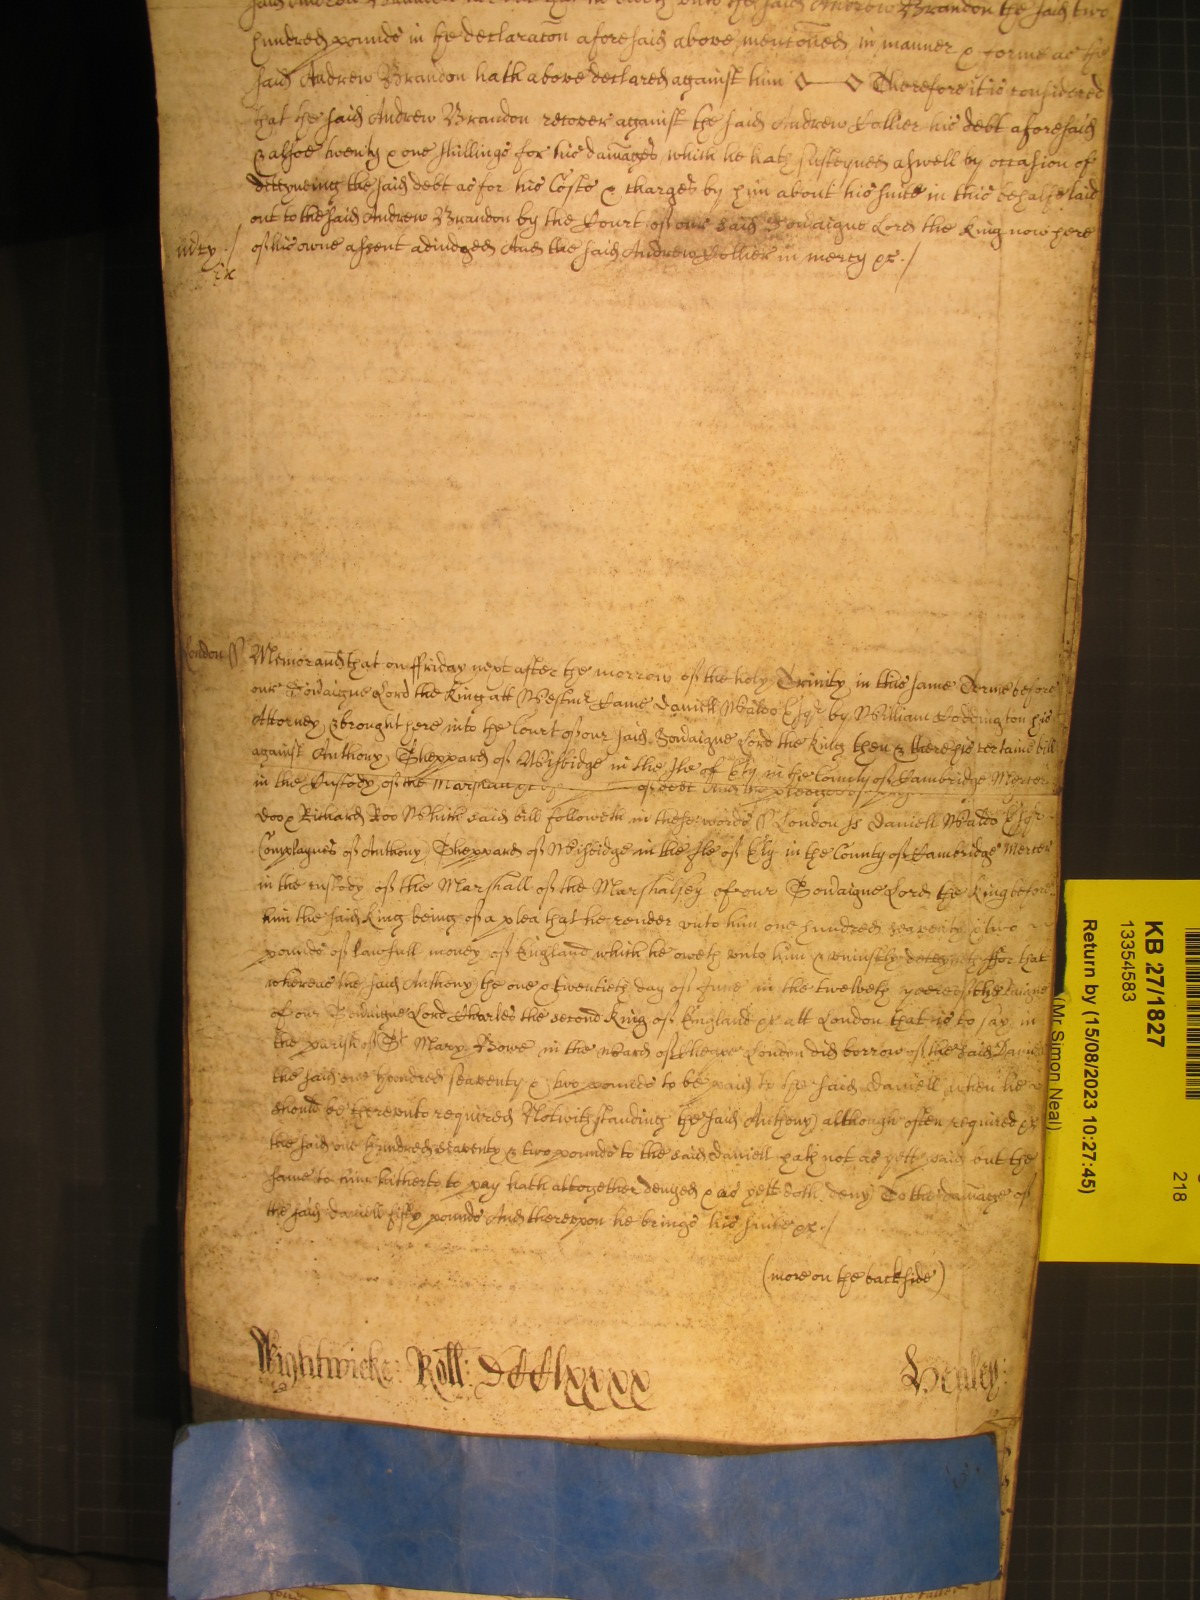 said Andrew Brandon the said two
hundred pounds in the declaracōn aforesaid above mentōned in manner & forme as the
said Andrew Brandon hath above declared against him Therefore it is considered
that the said Andrew Brandon recover against the said Andrew Collier his debt aforesaid
& alsoe twenty & one shillings for his damages which he hath susteyned aswell by occasion of
deteyneing the said debt as for his Costs & charges by him about his suite in this behalfe laid
out to the said Andrew Brandon by the Court of our said Sovaigne Lord the King now here
of his owne assent adiudged And the said Andrew Collier in mercy &c./
mcy./
Ex
London ss Memorand that on ffriday next after the morrow of the holy Trinity in this same Terme before
our Sovaigne Lord the King att Westmr Came Daniell Waldo Esqr by William Coddington his
Attorney & brought here into the Court of our said Sovaigne Lord the King then & there his certaine bill
against Anthony Sheppard of Wisbidge in the Ile of Ely in the County of Cambridge Mercer
in the Custody of the Marshall &c of debt And
Doo & Richard Roo Which said bill followeth in these words ss London ss Daniell Waldo Esqr
Complaynes of Anthony Sheppard of Wisbidge in the Ile of Ely in the County of Cambridge Mercer
in the custody of the Marshall of the Marshalsey of our Sovaigne Lord the King before
him the said King being of a plea that he render unto him one hundred seaventy & two
pounds of lawfull money of England which he oweth unto him & uniustly deteyneth ffor that
whereas the said Anthony the one & twentieth day of June in the twelveth yeere of the Raigne
of our Sovaigne Lord Charles the second King of England &c att London that is to say in
the parish of St Mary Bowe in the Ward of Cheape London did borrow of the said Daniell
the said one hundred seaventy & two pounds to be paid to the said Daniell when he
should be thereunto required Notwithstanding the said Anthony although often required &c
the said one hundred seaventy & two pounds to the said Daniell hath not as yett paid but the
same to him hitherto to pay hath altogether denyed & as yett doth deny To the damage of
the said Daniell fifty pounds And thereupon he brings his suite &c./
(more on the backside)
Wightwicke: Roll: DCClxxxx Henley:
KB 27/1827
13354583
218
Return by (15/08/2023 10:27:45)
(Mr Simon Neal)